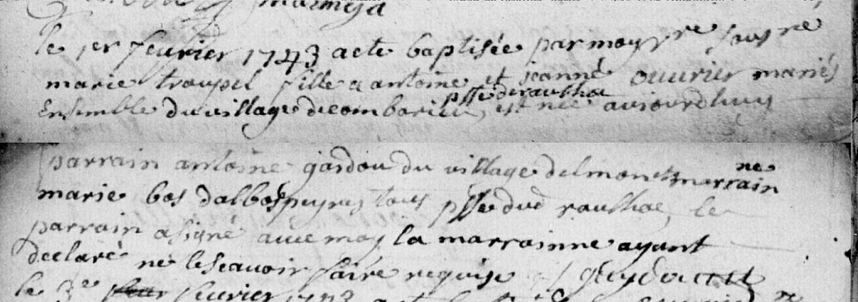 le 1er fevrier 1743 a ete baptisée par moy vre sous né
marie troupel fille a antoine et jeanne ouvrier mariés
Ensemble du village de combarieu psse de raulhac est née aujourdhuy
parrain antoine gardou du village delmon et marrainne
marie bos dalbospeyre tous psse dud raulhac le
parrain a signé avec moy la marrainne ayant
declaré ne le scavoir faire requise
le 3e fevrier 1743 a ete